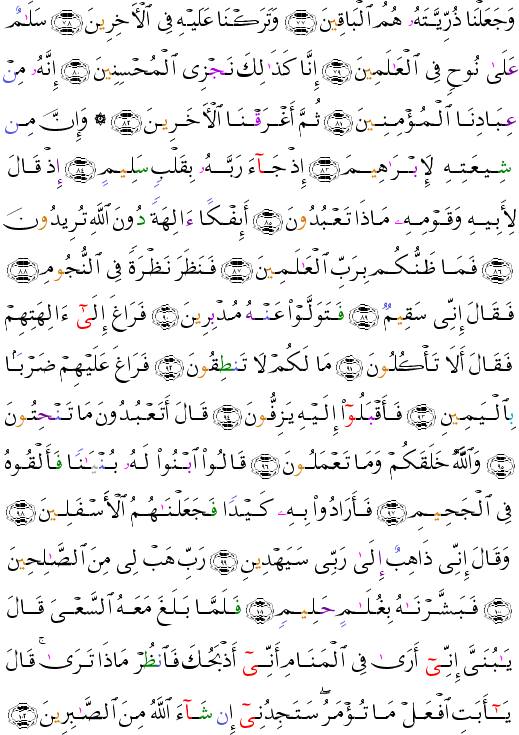 وَجَعَلْنَا ذُرِّيَّتَهُۥ هُمُ ٱلْبَاقِينَ ﴿٧٧﴾ وَتَرَكْنَا عَلَيْهِ فِى ٱلْأَخِرِينَ ﴿٧٨﴾ سَلَٰمٌ
عَلَىٰ نُوحٍ فِى ٱلْعَٰلَمِينَ ﴿٧٩﴾ إِنَّا كَذَٰلِكَ نَجْزِى ٱلْمُحْسِنِينَ ﴿٨٠﴾ إِنَّهُۥ مِنْ
عِبَادِنَا ٱلْمُؤْمِنِينَ ﴿٨١﴾ ثُمَّ أَغْرَقْنَا ٱلْأَخَرِينَ ﴿٨٢﴾ ۞ وَإِنَّ مِن
شِيعَتِهِۦ لَإِبْرَٰهِيمَ ﴿٨٣﴾ إِذْ جَآءَ رَبَّهُۥ بِقَلْبٍ سَلِيمٍ ﴿٨٤﴾ إِذْ قَالَ
لِأَبِيهِ وَقَوْمِهِۦ مَاذَا تَعْبُدُونَ ﴿٨٥﴾ أَئِفْكًا ءَالِهَةً دُونَ ٱللَّهِ تُرِيدُونَ
﴿٨٦﴾ فَمَا ظَنُّكُم بِرَبِّ ٱلْعَٰلَمِينَ ﴿٨٧﴾ فَنَظَرَ نَظْرَةً فِى ٱلنُّجُومِ ﴿٨٨﴾
فَقَالَ إِنِّى سَقِيمٌ ﴿٨٩﴾ فَتَوَلَّوْا۟ عَنْهُ مُدْبِرِينَ ﴿٩٠﴾ فَرَاغَ إِلَىٰٓ ءَالِهَتِهِمْ
فَقَالَ أَلَا تَأْكُلُونَ ﴿٩١﴾ مَا لَكُمْ لَا تَنطِقُونَ ﴿٩٢﴾ فَرَاغَ عَلَيْهِمْ ضَرْبًۢا
بِٱلْيَمِينِ ﴿٩٣﴾ فَأَقْبَلُوٓا۟ إِلَيْهِ يَزِفُّونَ ﴿٩٤﴾ قَالَ أَتَعْبُدُونَ مَا تَنْحِتُونَ
﴿٩٥﴾ وَٱللَّهُ خَلَقَكُمْ وَمَا تَعْمَلُونَ ﴿٩٦﴾ قَالُوا۟ ٱبْنُوا۟ لَهُۥ بُنْيَٰنًا فَأَلْقُوهُ
فِى ٱلْجَحِيمِ ﴿٩٧﴾ فَأَرَادُوا۟ بِهِۦ كَيْدًا فَجَعَلْنَٰهُمُ ٱلْأَسْفَلِينَ ﴿٩٨﴾
وَقَالَ إِنِّى ذَاهِبٌ إِلَىٰ رَبِّى سَيَهْدِينِ ﴿٩٩﴾ رَبِّ هَبْ لِى مِنَ ٱلصَّٰلِحِينَ
﴿١٠٠﴾ فَبَشَّرْنَٰهُ بِغُلَٰمٍ حَلِيمٍ ﴿١٠١﴾ فَلَمَّا بَلَغَ مَعَهُ ٱلسَّعْىَ قَالَ
يَٰبُنَىَّ إِنِّىٓ أَرَىٰ فِى ٱلْمَنَامِ أَنِّىٓ أَذْبَحُكَ فَٱنظُرْ مَاذَا تَرَىٰ ۚ قَالَ
يَٰٓأَبَتِ ٱفْعَلْ مَا تُؤْمَرُ ۖ سَتَجِدُنِىٓ إِن شَآءَ ٱللَّهُ مِنَ ٱلصَّٰبِرِينَ ﴿١٠٢﴾